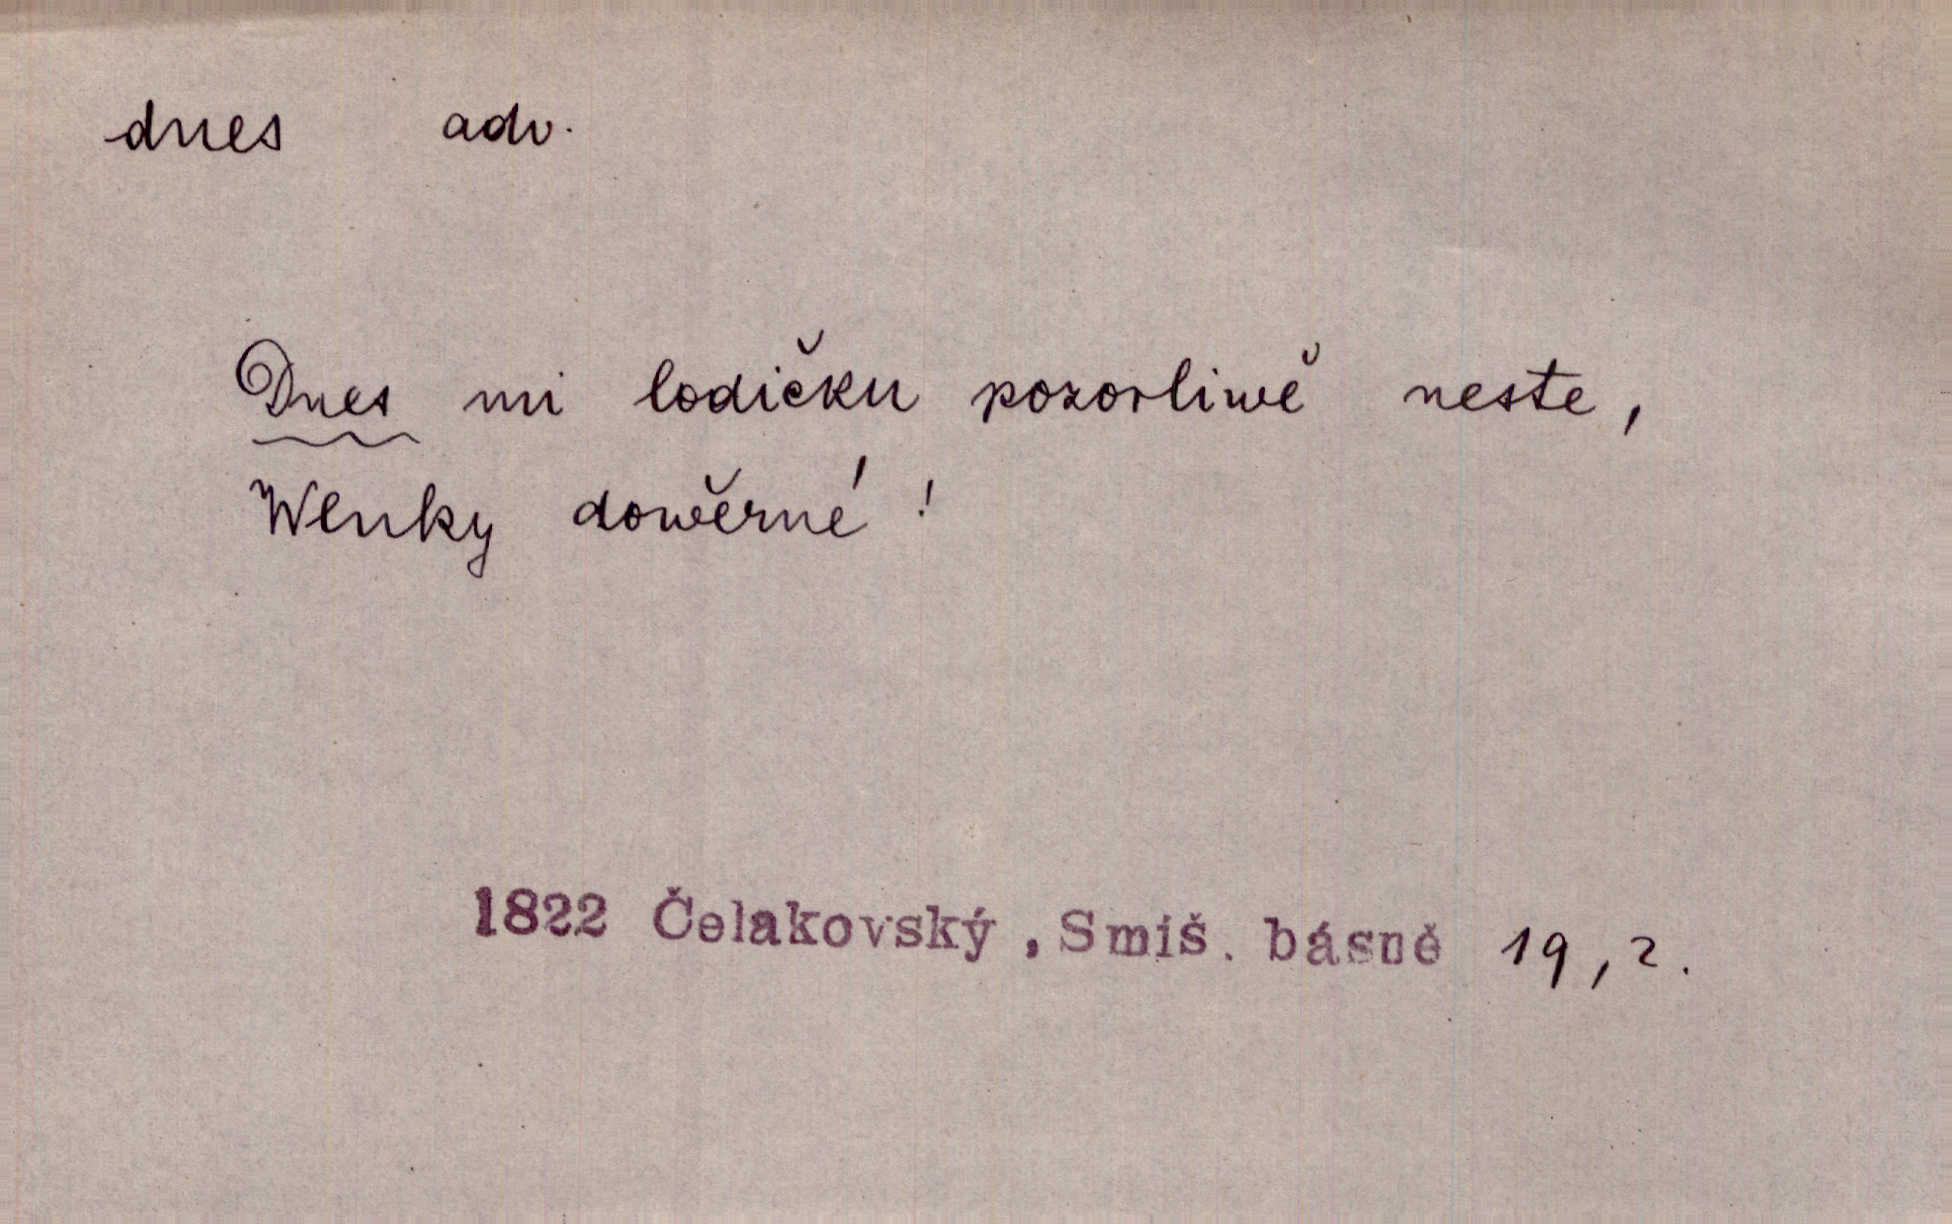 dnes adv.
Dnes mi lodičku pozorliwě neste,
Wlnky dowěrné!
1822 Čelakovský, Smíš. básně 19, 2.